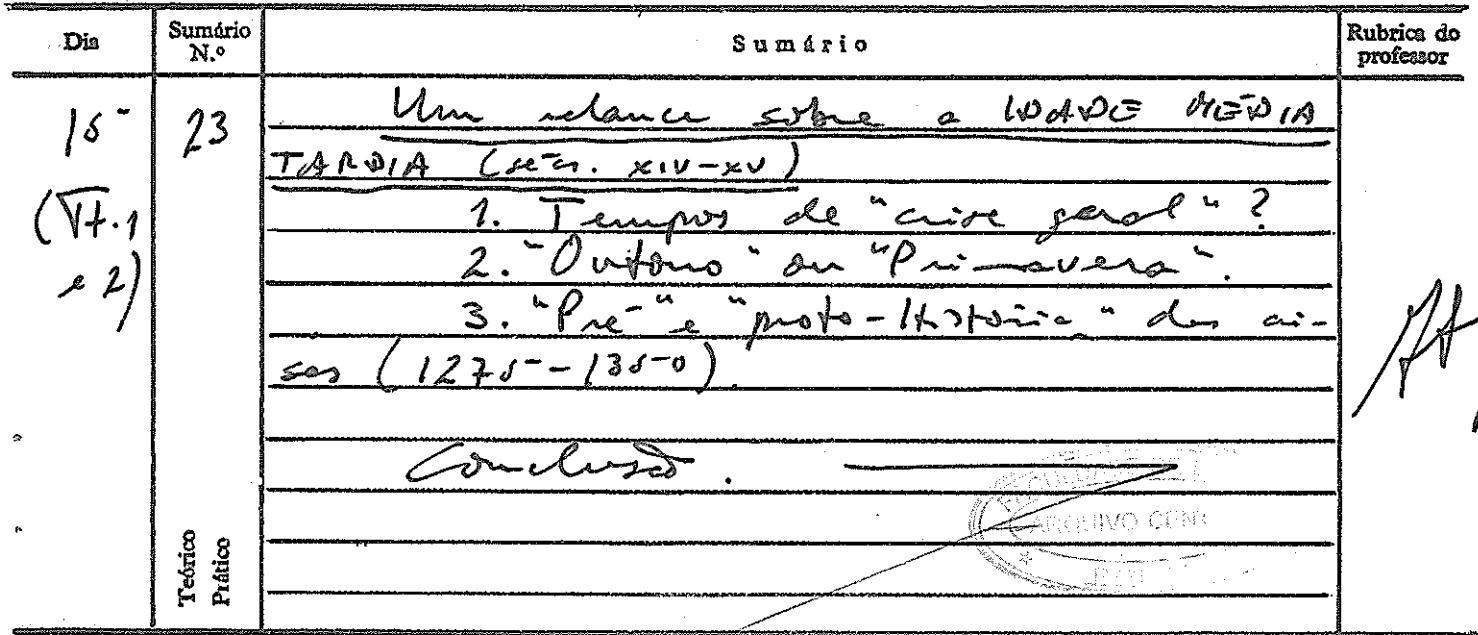 Dia
Sumário N.º
Sumário
Rubrica do professor
15
23
(Tt. 1 e 2)
Um relance sobre a IDADE MÉDIA
TARDIA (sécs. XIV-XV)
1. Tempos de "crise geral"?
2. "Outono" ou "Primavera".
3. "Pré-" e "proto-História" das cri-
ses (1275-1350).
Conclusão.
Teórico
Prático
ARQUIVO